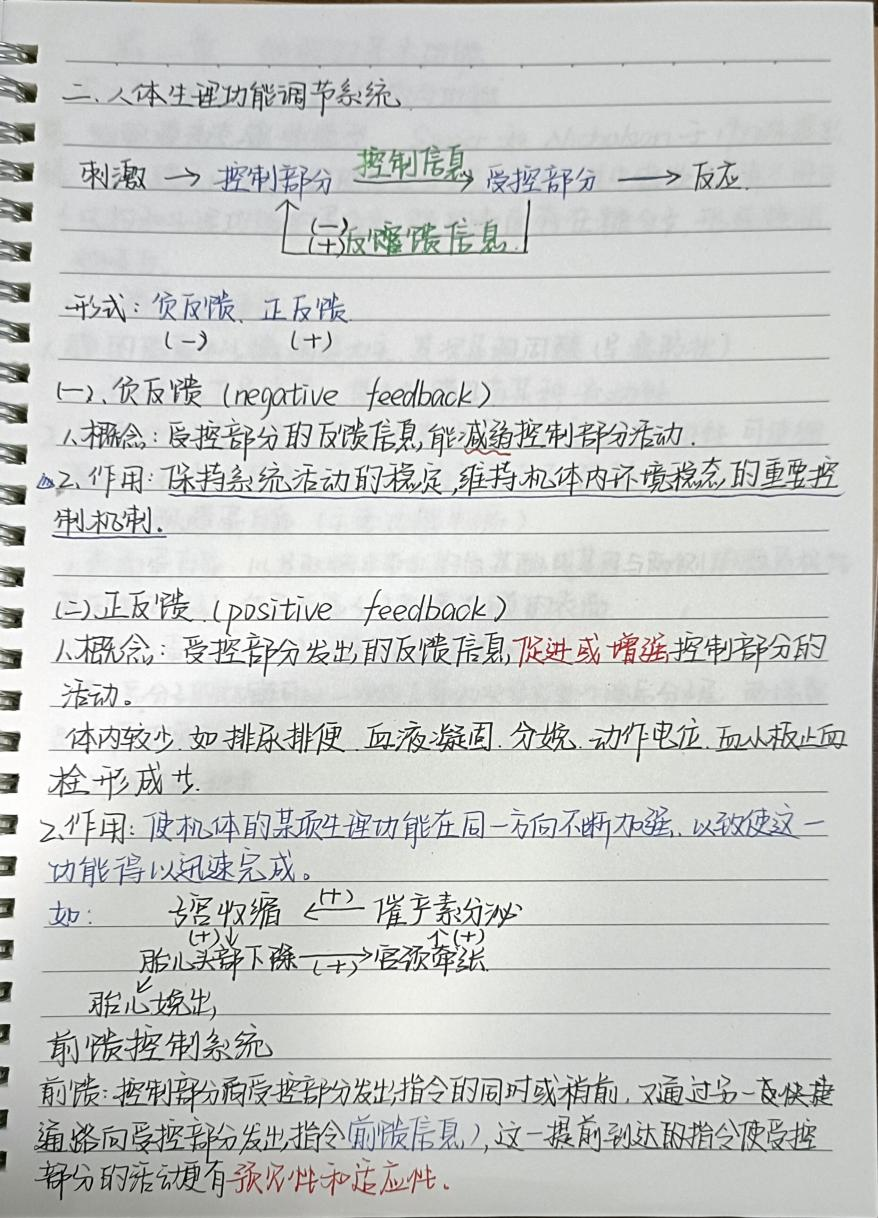 二、人体生理功能调节系统
刺激 → 控制部分 控制信息→ 受控部分 → 反应.
(-)
(+)反馈信息
形式：负反馈、正反馈.
(-) (+)
(一)、负反馈 (negative feedback)
1、概念：受控部分的反馈信息,能减弱控制部分活动.
2、作用：保持系统活动的稳定,维持机体内环境稳态的重要控
制机制.
(二)、正反馈.(positive feedback)
1、概念：受控部分发出的反馈信息,促进或增强控制部分的
活动。
体内较少.如排尿排便.血液凝固.分娩.动作电位.血小板止血
栓形成等.
2、作用：使机体的某项生理功能在同一方向不断加强,以致使这一
功能得以迅速完成。
如：子宫收缩 ←(+) 催产素分泌
(+)↓ ↑(+)
胎儿头部下降 →(+) 宫颈牵张.
↙
胎儿娩出,
前馈控制系统
前馈：控制部分向受控部分发出指令的同时或稍前,又通过另一快捷
通路向受控部分发出指令(前馈信息),这一提前到达的指令使受控
部分的活动更有预见性和适应性.